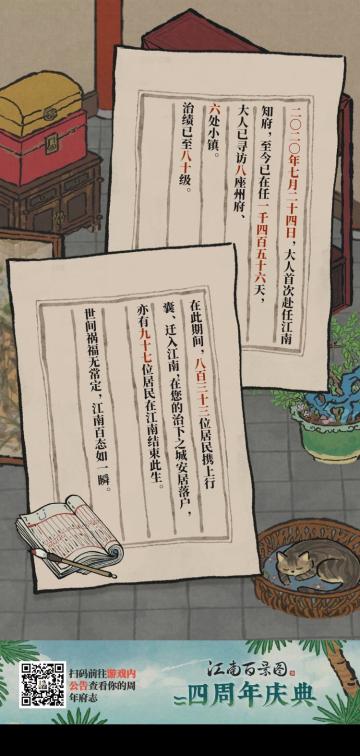 二〇二〇年七月二十四日，大人首次赴任江南
知府，至今已在任一千四百五十六天，
大人已寻访八座州府、
六处小镇。
治绩已至八十级。
在此期间，八百三十三位居民携上行
囊、迁入江南，在您的治下之城安居落户，
亦有九十七位居民在江南结束此生。
世间祸福无常定，江南百态如一瞬。
扫码前往游戏内
公告查看你的周
年府志
江南百景图
四周年庆典